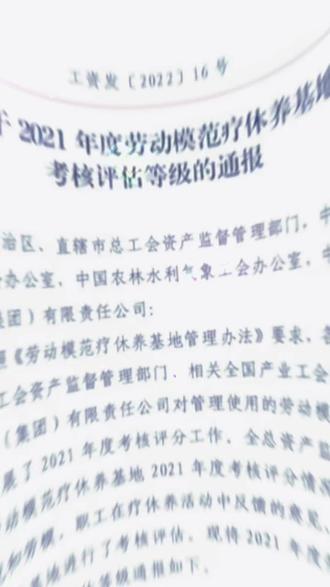 工资发〔2022〕16号
于 2021 年度劳动模范疗休养基地
考核评估等级的通报
治区、直辖市总工会资产监督管理部门，中
办公室，中国农林水利气象工会办公室，中
集团）有限责任公司：
《劳动模范疗休养基地管理办法》要求，各
工会资产监督管理部门、相关全国产业工会
（集团）有限责任公司对管理使用的劳动模
展了 2021 年度考核评分工作。全总资产监
动模范疗休养基地 2021 年度考核评分情况
和劳模、职工在疗休养活动中反馈的意见
基地进行了考核评估。现将 2021 年度
等级通报如下。